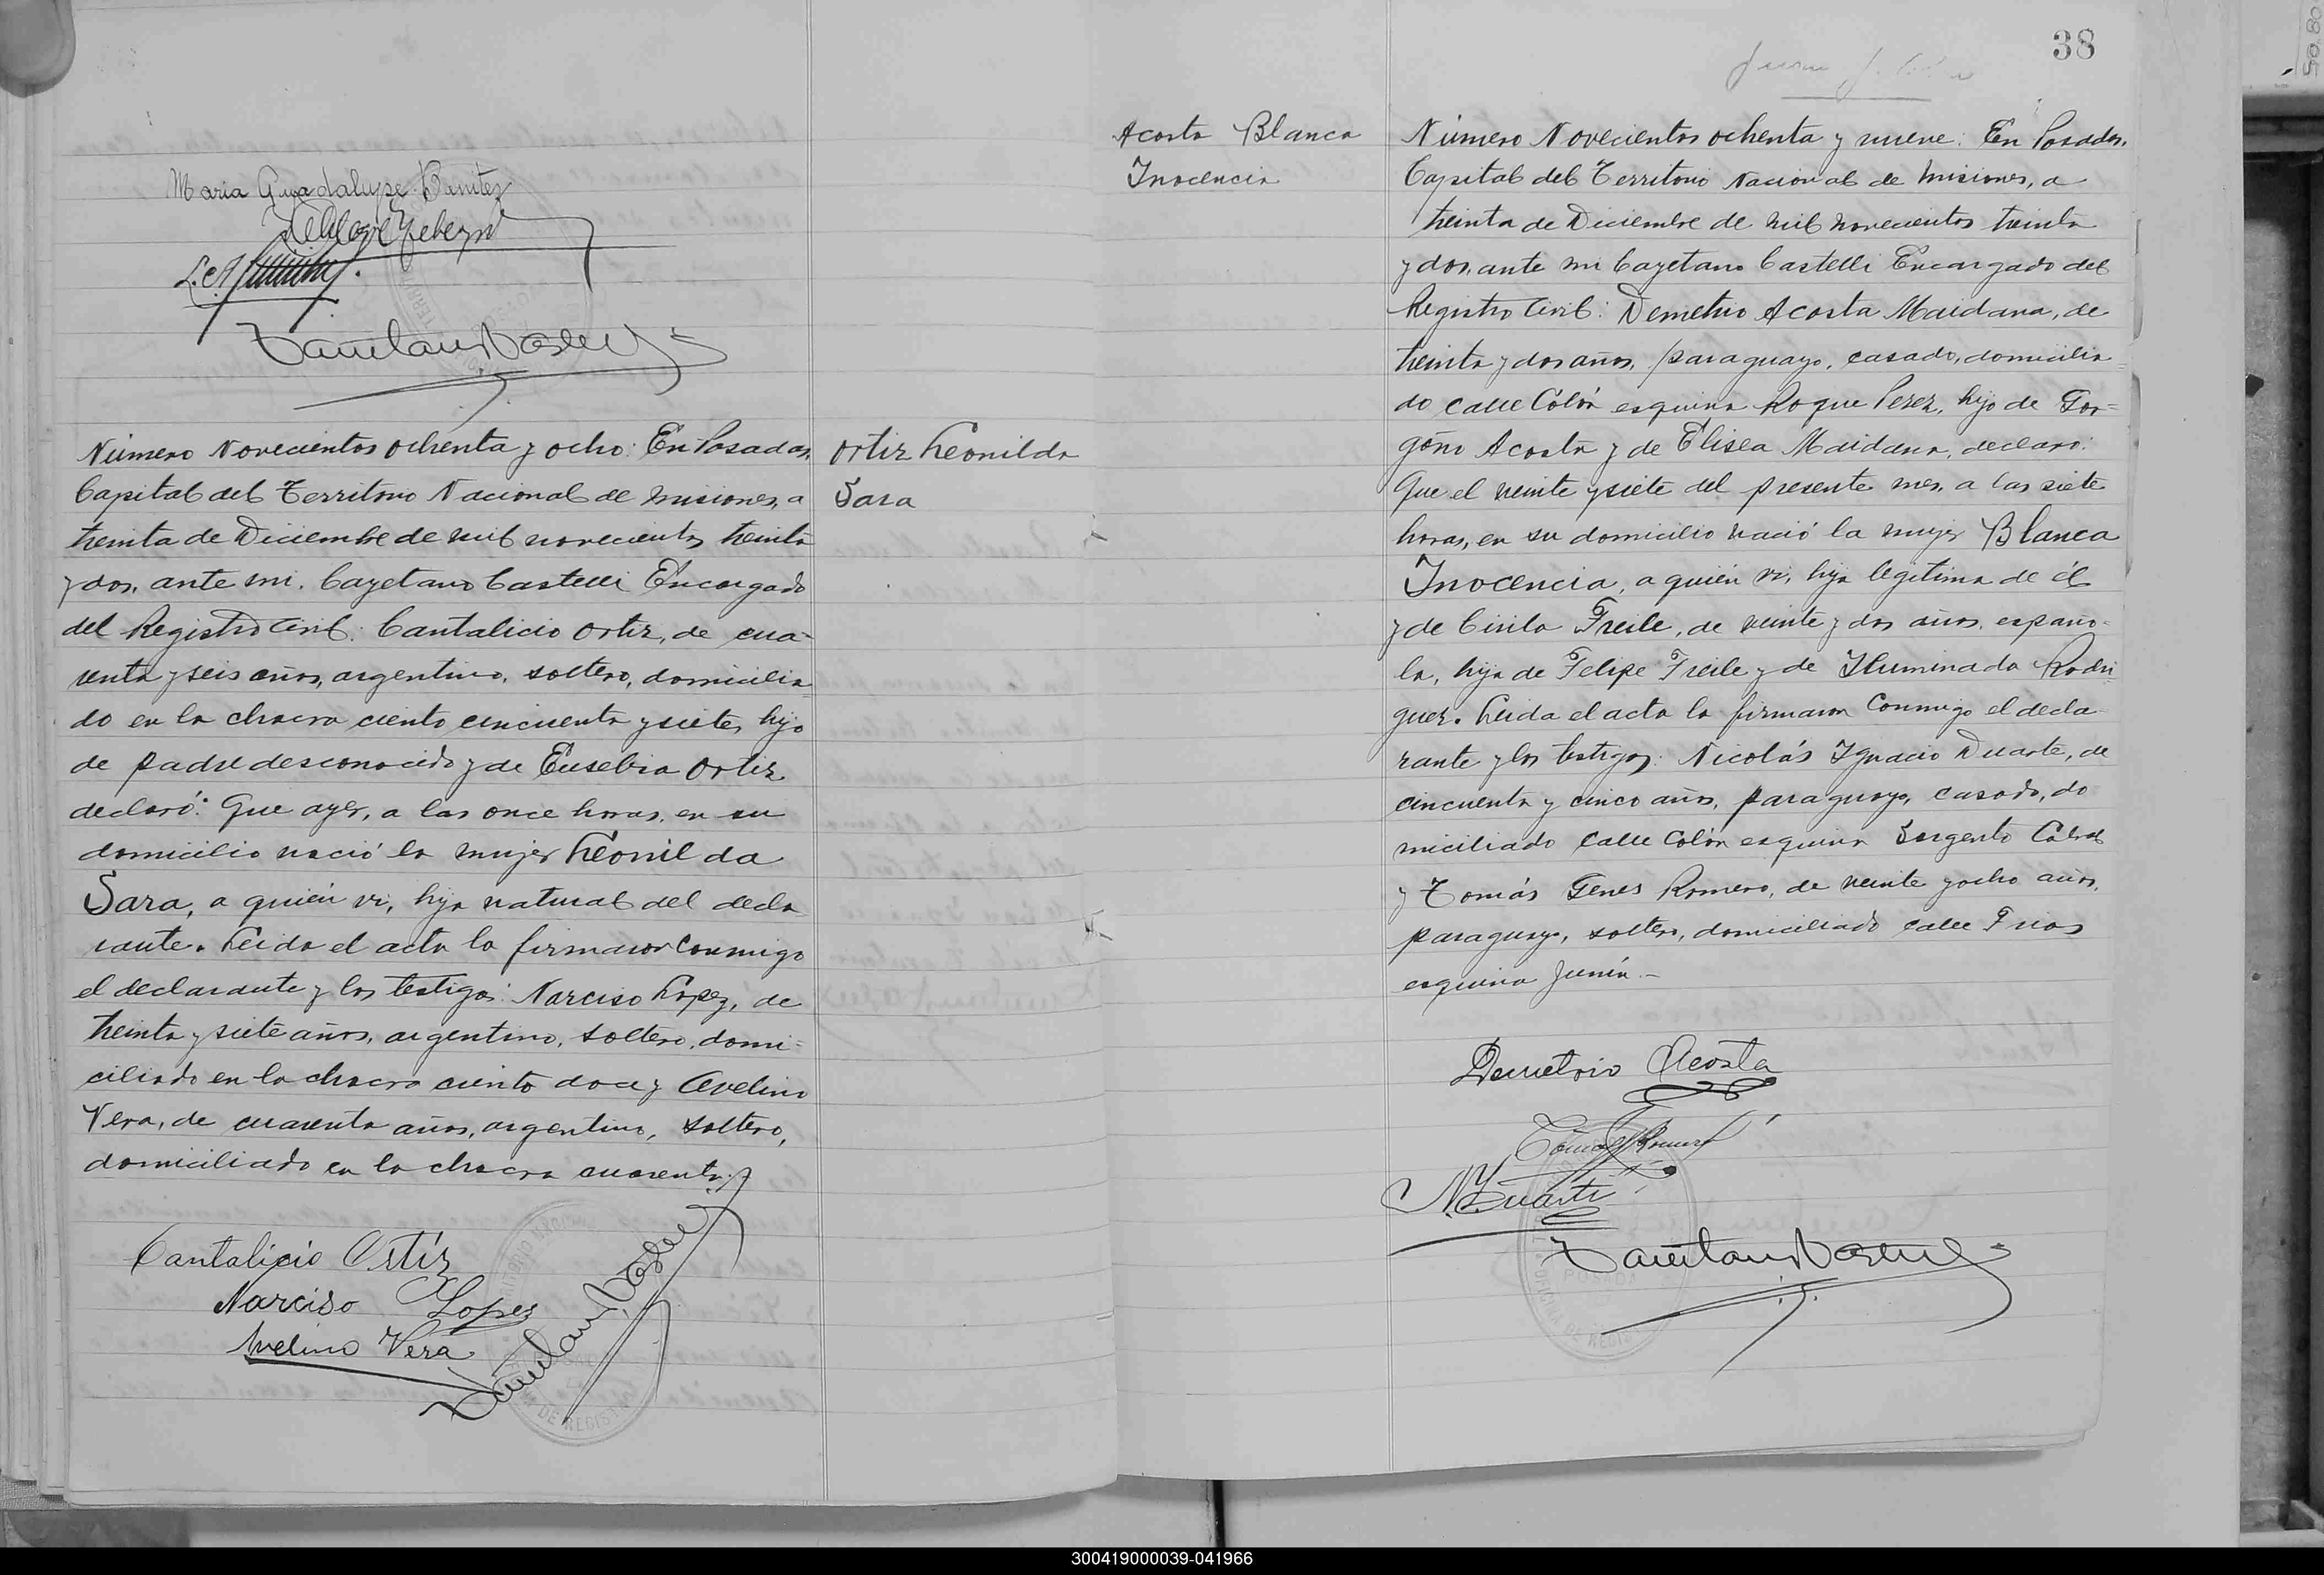 Maria Guadalupe Benitez
Número Novecientos ochenta y ocho: En Posadas,
Capital del Territorio Nacional de Misiones, a
treinta de Diciembre de mil novecientos treinta
y dos, ante mi, Cayetano Castelli Encargado
del Registro Civil: Cantalicio Ortiz, de cua-
renta y seis años, argentino, soltero, domicilia-
do en la chacra ciento cincuenta y siete, hijo
de padre desconocido y de Eusebia Ortiz,
declaró: Que ayer, a las once horas, en su
domicilio nació la mujer Leonilda
Sara, a quién vi, hija natural del decla
rante. Leida el acta la firmaron conmigo
el declarante y los testigos: Narciso Lopez, de
treinta y siete años, argentino, soltero, domi-
ciliado en la chacra ciento doce y Avelino
Vera, de cuarenta años, argentino, soltero,
domiciliado en la chacra cuarenta.
Ortiz Leonilda
Sara
Cantalicio Ortíz
Narciso Lopes
Avelino Vera
DE REGIS
38
Acosta Blanca
Inocencia
Número Novecientos ochenta y nueve: En Posadas,
Capital del Territorio Nacional de Misiones, a
treinta de Diciembre de mil novecientos treinta
y dos, ante mi Cayetano Castelli Encargado del
Registro Civil: Demetrio Acosta Maidana, de
treinta y dos años, paraguayo, casado, domicilia-
do calle Cólón esquina Roque Perez, hijo de Gor-
gonio Acosta y de Elisea Maidana, declaró:
Que el veinte y siete del presente mes, a las siete
horas, en su domicilio nació la mujer Blanca
Inocencia, a quién vi, hija legitima de él
y de Cirila Freile, de veinte y dos años, españo-
la, hija de Felipe Freile y de Iluminada Rodri
guez. Leida el acta la firmaron conmigo el decla-
rante y los testigos: Nicolás Ignacio Duarte, de
cincuenta y cinco años, paraguayo, casado, do
miciliado calle Colón esquina Sargento Cabral
y Tomás Genes Romero, de veinte y ocho años,
paraguayo, soltero, domiciliado calle Frias
esquina Junín.-
Demetrio Acosta
Tomas G Romero
N Y Duarte
POSADA
OFICINA DE REGIS
300419000039-041966